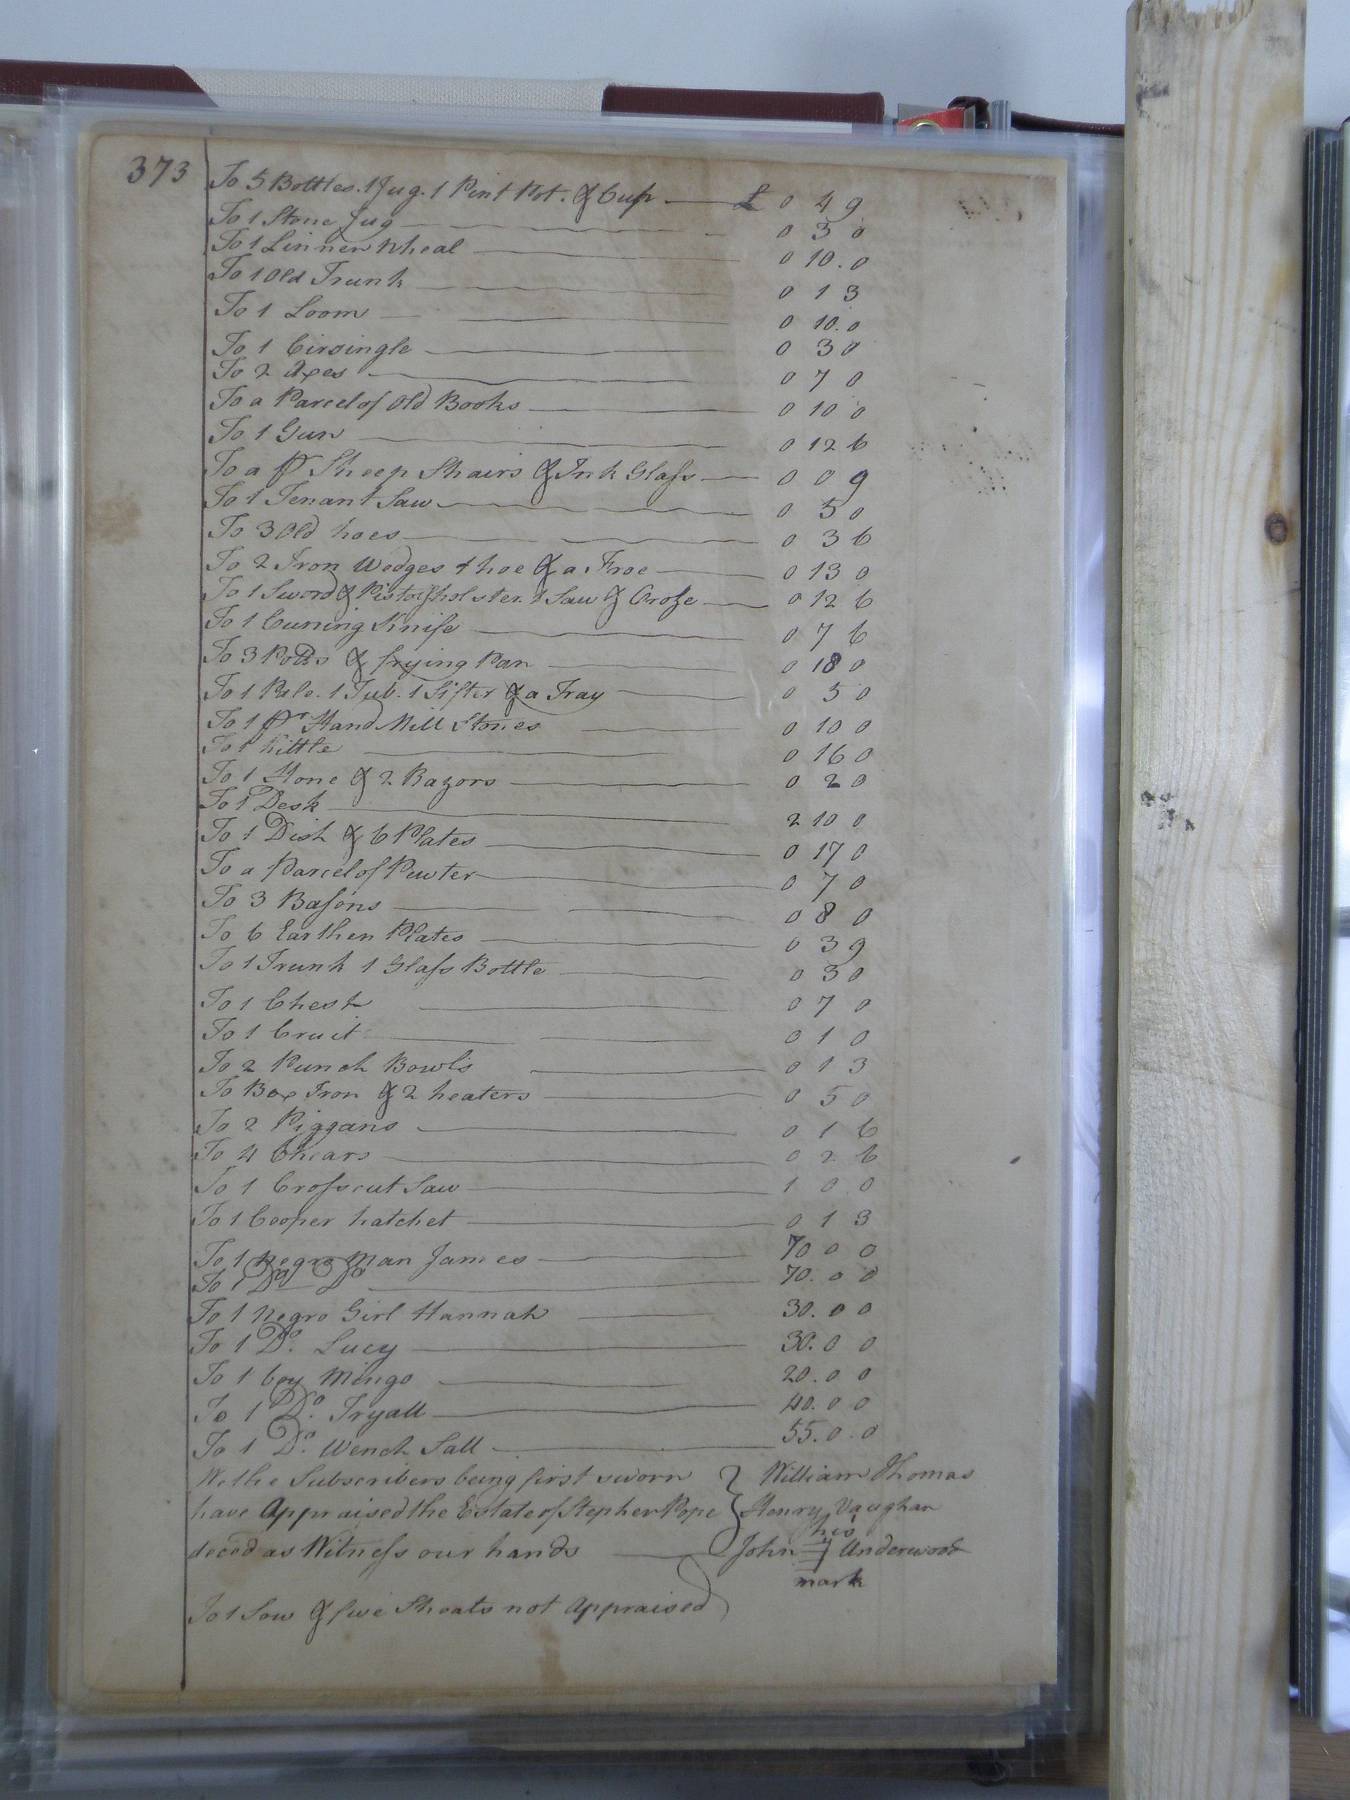 373
To 5 Bottles. 1 Jug. 1 Pint Pot. & Cup — £ 0 4 9
To 1 Stone Jug — 0 3 0
To 1 Linnen Wheal — 0 10. 0
To 1 Old Trunk — 0 1 3
To 1 Loom — 0 10. 0
To 1 Cirsingle — 0 3 0
To 2 Axes — 0 7 0
To a Parcel of Old Books — 0 10 0
To 1 Gun — 0 12 6
To a pr Sheep Shairs & Ink Glass — 0 0 9
To 1 Tenant Saw — 0 5 0
To 3 Old hoes — 0 3 6
To 2 Iron Wedges 1 hoe & a Froe — 0 13 0
To 1 Sword & Pistol & holster. 1 Saw & Crose — 0 12 6
To 1 Curing Knife — 0 7 6
To 3 Potts & frying Pan — 0 18 0
To 1 Pale. 1 Tub. 1 Sifter & a Tray — 0 5 0
To 1 pr Hand Mill Stones — 0 10 0
To 1 Kittle — 0 16 0
To 1 Hone & 2 Razors — 0 2 0
To 1 Desk — 2 10 0
To 1 Dish & 6 Plates — 0 17 0
To a Parcel of Pewter — 0 7 0
To 3 Basons — 0 8 0
To 6 Earthen Plates — 0 3 9
To 1 Trunk 1 Glass Bottle — 0 3 0
To 1 Chest — 0 7 0
To 1 Cruit — 0 1 0
To 2 Punch Bowls — 0 1 3
To Box Iron & 2 heaters — 0 5 0
To 2 Piggans — 0 1 6
To 4 Chears — 0 2 6
To 1 Crosscut Saw — 1 0 0
To 1 Cooper hatchet — 0 1 3
To 1 negro man James — 70 0 0
To 1 Do Do — 70. 0 0
To 1 negro Girl Hannah — 30. 0 0
To 1 Do. Lucy — 30. 0 0
To 1 boy Mingo — 20. 0 0
To 1 Do. Tryall — 40. 0 0
To 1 Do. Wench Sall — 55. 0. 0
We the Subscribers being first sworn } William Thomas
have Appraised the Estate of Stephen Pope } Henry Vaughan
his
decēd as Witness our hands — John Underwood
mark
To 1 Sow & five Shoats not Appraised